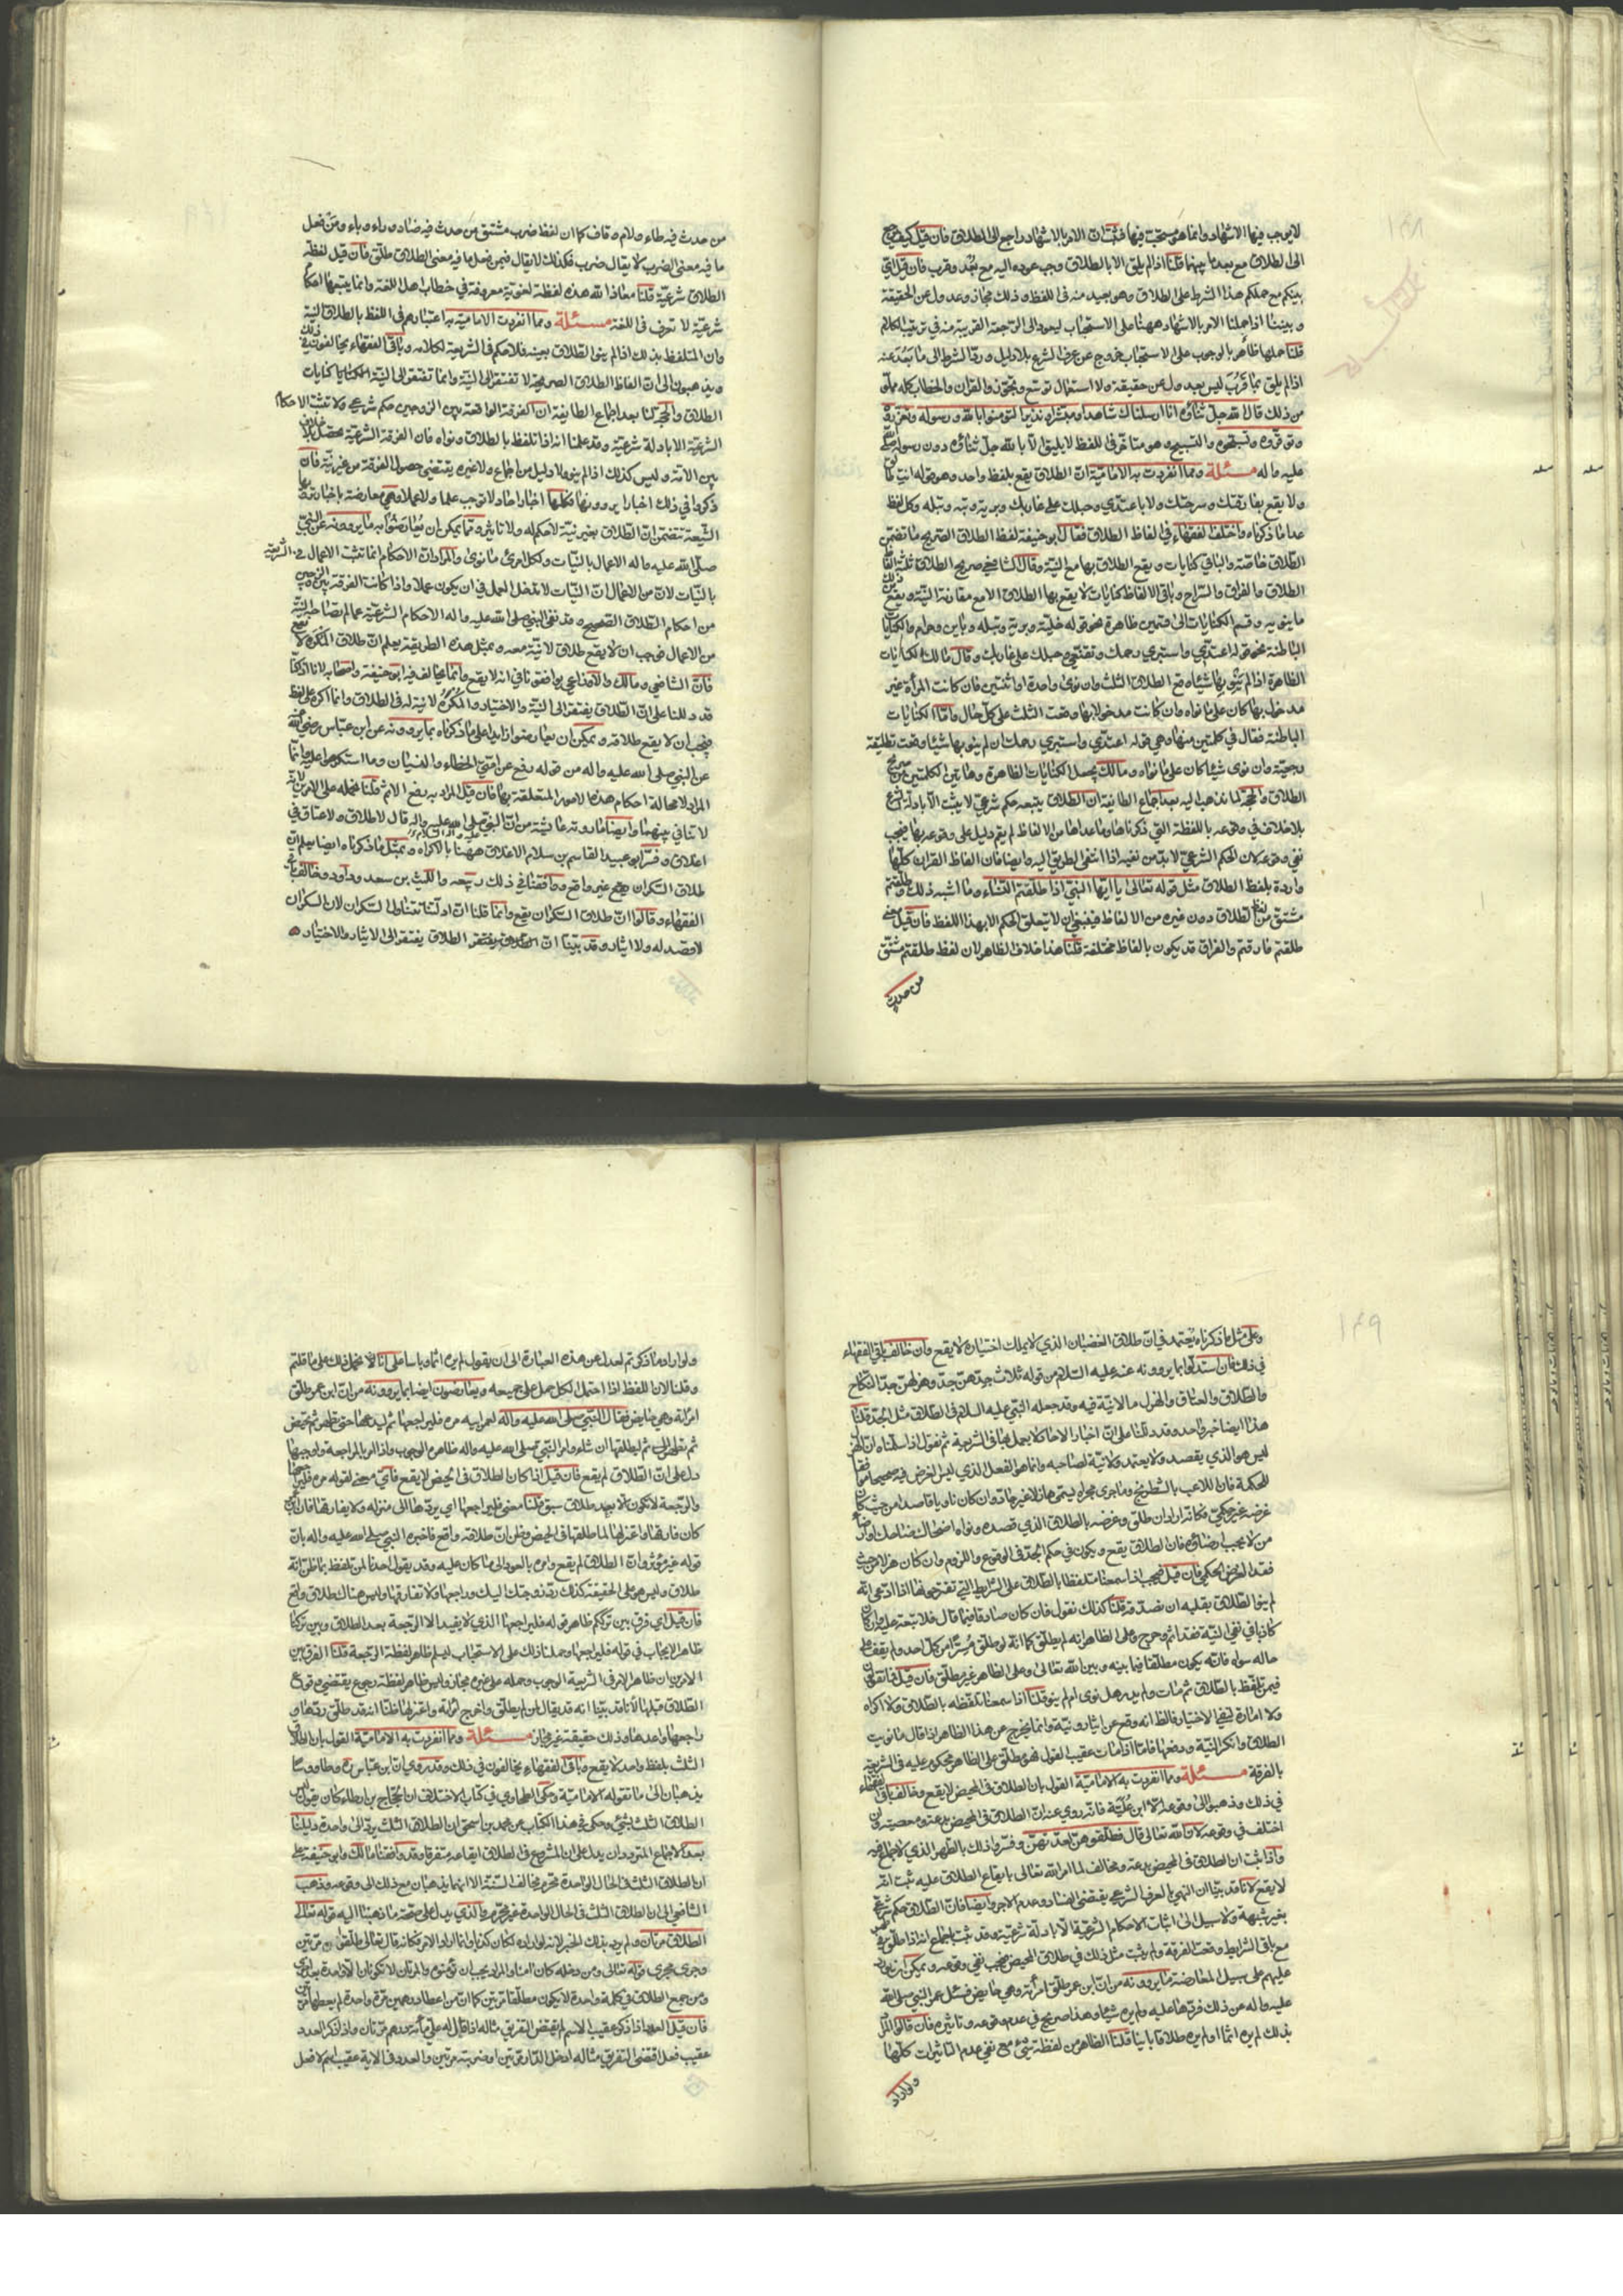 ١٤٨
لا يوجب فيها الاشهاد وانما هو مستحب فيها فثبت ان الامر بالاشهاد راجع الى الطلاق فان قيل كيف يرجع
الى الطلاق مع بعد ما بينهما قلنا اذا لم يلق الا بالطلاق وجب عوده اليه مع بعد وقرب فان قيل اي فرق
بينكم مع حملكم هذا الشرط على الطلاق وهو بعيد منه في اللفظ وذلك مجاز وعدول عن الحقيقة
وبيننا اذا حملنا الامر بالاشهاد ههنا على الاستحباب ليعود الى الرجعة القريبة منه في ترتيب الكلام
قلنا حمل ما ظاهره الوجوب على الاستحباب خروج عن عرف الشرع بلا دليل ورد الشرط الى ما بعد عنه
اذا لم يلق بما قرب ليس بعدول عن حقيقة ولا استعمال توسع وتجوز والقران والخطاب كله مملو
من ذلك قال الله جل ثناؤه انا ارسلناك شاهدا ومبشرا ونذيرا لتؤمنوا بالله ورسوله وتعزروه
وتوقروه وتسبحوه والتسبيح وهو متاخر في اللفظ لا يليق الا بالله جل ثناؤه دون رسوله صلى الله
عليه واله مسئلة ومما انفردت به الامامية ان الطلاق يقع بلفظ واحد وهو قوله انت طالق
ولا يقع بفارقتك وسرحتك ولا باعتدي وحبلك على غاربك وبرية وبتة وبتلة وكل لفظ
عدا ما ذكرناه واختلف الفقهاء في الفاظ الطلاق فقال ابو حنيفة لفظ الطلاق الصريح ما تضمن
الطلاق خاصة والباقي كنايات ويقع الطلاق بها مع النية وقال الشافعي صريح الطلاق ثلثة الفاظ
الطلاق والفراق والسراح وباقي الالفاظ كنايات لا يقع بها الطلاق الا مع مقارنة النية ويقع
ما ينويه وقسم الكنايات الى قسمين ظاهرة نحو قوله خلية وبرية وبتلة وباين وحرام والكنايات
الباطنة نحو قوله اعتدي واستبري رحمك وتقنعي وحبلك على غاربك وقال مالك الكنايات
الظاهرة اذا لم ينو بها شيئا وقع الطلاق الثلث وان نوى واحدة او اثنتين فان كانت المرأة غير
مدخول بها كان على ما نواه وان كانت مدخولا بها وقعت الثلث على كل حال واما الكنايات
الباطنة فقال في كلمتين منها وهي قوله اعتدي واستبري رحمك ان لم ينو بها شيئا وقعت تطليقة
رجعية وان نوى شيئا كان على ما نواه ومالك يجعل الكنايات الظاهرة وهاتين الكلمتين من صريح
الطلاق والحجة لما نذهب اليه بعد اجماع الطائفة ان الطلاق يتبعه حكم شرعي لا يثبت الا بادلة الشرع
بلا خلاف في وقوعه باللفظة التي ذكرناها وما عداها من الالفاظ لم يقم دليل على وقوعه بها فيجب
نفي وقوعه لان الحكم الشرعي لا بد من نفيه اذا انتفى الطريق اليه وايضا فان الفاظ القران كلها
واردة بلفظ الطلاق مثل قوله تعالى يا ايها النبي اذا طلقتم النساء وما اشبه ذلك وطلقتم
مشتق من لفظ الطلاق دون غيره من الالفاظ فينبغي ان لا يتعلق الحكم الا بهذا اللفظ فان قيل معنى
طلقتم فارقتم والفراق قد يكون بالفاظ مختلفة قلنا هذا خلاف الظاهر لان لفظ طلقتم مشتق
من حدث
من حدث فيه طاء ولام وقاف كما ان لفظ ضرب مشتق من حدث فيه ضاد وراء وباء ومن فعل
ما فيه معنى الضرب لا يقال ضرب فكذلك لا يقال فيمن فعل ما فيه معنى الطلاق طلق فان قيل لفظة
الطلاق شرعية قلنا معاذ الله هذه لفظة لغوية معروفة في خطاب اهل اللغة وانما يتبعها احكام
شرعية لا تعرف في اللغة مسئلة ومما انفردت الامامية به اعتبارهم في اللفظ بالطلاق النية
وان المتلفظ بذلك اذا لم ينو الطلاق بعينه فلا حكم في الشريعة لكلامه وباقي الفقهاء يخالفون في ذلك
ويذهبون الى ان الفاظ الطلاق الصريحة لا تفتقر الى النية وانما تفتقر الى النية كنايات
الطلاق والحجة لنا بعد اجماع الطايفة ان الفرقة الواقعة بين الزوجين حكم شرعي ولا تثبت الاحكام
الشرعية الا بادلة شرعية وقد علمنا انه اذا تلفظ بالطلاق ونواه فان الفرقة الشرعية تحصل بلا خلاف
بين الامة وليس كذلك اذا لم ينو ولا دليل من اجماع ولا غيره يقتضي حصول الفرقة من غير نية فان
ذكروا في ذلك اخبارا يروونها فكلها اخبار احاد لا توجب علما ولا عملا وهي معارضة باخبار ترويها
الشيعة تتضمن ان الطلاق بغير نية لا حكم له ولا تاثير ومما يمكن ان يعارضوا به ما يروونه عن النبي
صلى الله عليه واله الاعمال بالنيات ولكل امرئ ما نوى والمراد ان الاحكام انما تثبت للاعمال في الشريعة
بالنيات لان من الاعمال ان النيات لا تدخل العمل في ان يكون عملا واذا كانت الفرقة بين الزوجين
من احكام الطلاق الصحيح وقد نفى النبي صلى الله عليه واله الاحكام الشرعية عما لم تصاحبه النية
من الاعمال فوجب ان لا يقع طلاق لا نية معه وبمثل هذه الطريقة يعلم ان طلاق المكره لا يقع
فان الشافعي ومالك والاوزاعي يوافقونا في انه لا يقع وانما يخالف فيه ابو حنيفة واصحابه لانا اذا كنا
قد دللنا على ان الطلاق يفتقر الى النية والاختيار والمكره لا نية له في الطلاق وانما اكره على لفظه
فيجب ان لا يقع طلاقه ويمكن ان يعارضوا زايدا على ما ذكرناه بما يروونه عن ابن عباس رضي الله عنه
عن النبي صلى الله عليه واله من قوله رفع عن امتي الخطاء والنسيان وما استكرهوا عليه وانما
المراد لا محالة احكام هذه الامور المتعلقة بها فان قيل المراد به رفع الاثم قلنا نحمله على الامرين لانه
لا تنافي بينهما وايضا ما روته عائشة من ان النبي صلى الله عليه واله قال لا طلاق ولا عتاق في
اغلاق وفسر ابو عبيد القاسم بن سلام الاغلاق ههنا بالاكراه وبمثل ما ذكرناه ايضا يعلم ان
طلاق السكران غير واقع ووافقنا في ذلك ربيعه والليث بن سعد وداود وخالف باقي
الفقهاء وقالوا ان طلاق السكران يقع وانما قلنا ان ادلتنا تتناول السكران لان السكران
لا قصد له ولا ايثار وقد بينا ان الطلاق يفتقر الى الايثار والاختيار
١٤٩
وعلى مثل ما ذكرناه يعتمد في ان طلاق الغضبان الذي لا يملك اختياره لا يقع وان خالف باقي الفقهاء
في ذلك فان استدلوا بما يروونه عنه عليه السلام من قوله ثلاث جدهن جد وهزلهن جد النكاح
والطلاق والعتاق والهزل ما لا نية فيه وقد جعله النبي عليه السلام في الطلاق مثل الجد قلنا
هذا ايضا خبر واحد وقد دللنا على ان اخبار الاحاد لا يعمل بها في الشريعة ثم نقول اذا سلمناه ان الهزل
ليس هو الذي يقصد ولا يعتمد ولا نية لصاحبه وانما هو الفعل الذي ليس الغرض فيه صحيحا موافقا
للحكمة فان اللاعب بالشطرنج وما جرى مجراه يسمى هازلا غير جاد وان كان ناويا قاصدا من حيث كان
غرضه غير حكمي فكانه اراد ان طلق وغرضه بالطلاق الذي قصده ونواه اضحاك ضاحك او ارضاء
من لا يجب ارضاؤه فان الطلاق يقع ويكون في حكم الجد في الوقوع واللزوم وان كان هزلا من حيث
فقد الغرض الحكمي فان قيل فيجب اذا سمعنا متلفظا بالطلاق على الشرايط التي تقترحونها اذا ادعى انه
لم ينو الطلاق بقلبه ان نصدقه قلنا كذلك نقول فان كان صادقا فيما قال فلا تبعة عليه وان كان
كاذبا في نفي النية فقد اثم وحرج وعلى الظاهر انه لم يطلق كما انه لو طلق مسرا من كل احد ولم يقف على
حاله سواه فانه يكون مطلقا فيما بينه وبين الله تعالى وعلى الظاهر غير مطلق فان قيل فما تقولون
فيمن تلفظ بالطلاق ثم مات ولم يدر هل نوى ام لم ينو قلنا اذا سمعنا تلفظه بالطلاق ولا اكراه
ولا امارة لنفي الاختيار فالظاهر انه وقع عن ايثار ونية وانما يخرج من هذا الظاهر اذا قال ما نويت
الطلاق وانكر النية ودفعها فاما اذا مات عقيب القول فهو مطلق على الظاهر محكوم عليه في الشريعة
بالفرقة مسئلة ومما انفردت به الامامية القول بان الطلاق في الحيض لا يقع وخالف باقي الفقهاء
في ذلك وذهبوا الى وقوعه الا ابن علية فانه روي عنه ان الطلاق في الحيض بدعة ومعصية وان
اختلف في وقوعه لان الله تعالى قال فطلقوهن لعدتهن وفسروا ذلك بالطهر الذي لا جماع فيه
واذا ثبت ان الطلاق في الحيض بدعة ومخالف لما امر الله تعالى بايقاع الطلاق عليه ثبت انه
لا يقع لانا قد بينا ان النهي بالعرف الشرعي يقتضي الفساد وعدم الاجزاء وايضا فان الطلاق حكم شرعي
بغير شبهة ولا سبيل الى اثبات الاحكام الشرعية الا بادلة شرعية وقد ثبت بالاجماع انه اذا طلق في طهر
مع باقي الشرايط وقعت الفرقة ولم يثبت مثل ذلك في طلاق الحيض فيجب نفي وقوعه ويمكن ان يورد
عليهم على سبيل المعارضة ما يروونه من ان ابن عمر طلق امرأته وهي حايض فسئل عمر النبي صلى الله
عليه واله عن ذلك فردها عليه ولم يره شيئا وهذا صريح في عدم وقوعه وتاثيره فان قالوا المراد
بذلك لم يره اثما او لم يره طلاقا باينا قلنا الظاهر من لفظة شيء مع نفي عدم التاثيرات كلها
ولو اراد
ولو اراد ما ذكرتم لعدل عن هذه العبارة الى ان يقول لم يره اثما وباسا على انا نحمل ذلك على ما قلتم
وقلنا لان اللفظ اذا احتمل الكل حمل على جميعه ويعارضون ايضا بما يروونه من ان ابن عمر طلق
امرأته وهي حايض فقال النبي صلى الله عليه واله لعمر ابيه مره فليراجعها ثم ليدعها حتى تطهر ثم تحيض
ثم تطهر ثم ليطلقها ان شاء وامر النبي صلى الله عليه واله ظاهره الوجوب واذا امر بالمراجعة واوجبها
دل على ان الطلاق لم يقع فان قيل اذا كان الطلاق في الحيض لا يقع فاي معنى لقوله مره فليراجعها
والرجعة لا تكون الا بعد طلاق سبق قلنا معنى فليراجعها اي يردها الى منزله ولا يفارقها فان ابن عمر
كان فارقها واعتزلها لما طلقها في الحيض وظن ان طلاقه واقع فاخبره النبي صلى الله عليه واله بان
قوله غير مؤثر وان الطلاق لم يقع وامره بالعود الى ما كان عليه وقد يقول احدنا لمن تلفظ بما ظن انه
طلاق وليس هو على الحقيقة كذلك رد زوجتك اليك وراجعها ولا تفارقها وليس هناك طلاق واقع
فان قيل اي فرق بين ترككم ظاهر قوله فليراجعها الذي لا يفيد الا الرجعة بعد الطلاق وبين تركنا
ظاهر الايجاب في قوله فليراجعها وحملنا ذلك على الاستحباب ليسلم ظاهر لفظة الرجعة قلنا الفرق بين
الامرين ان ظاهر الامر في الشريعة الوجوب وحمله على غيره مجاز وليس ظاهر لفظة رجوع يقتضي وقوع
الطلاق قبلها لانا قد بينا انه قد يقال لمن لم يطلق واخرج امرأته واعتزلها ظنا انه قد طلق ردها و
راجعها واعدها وذلك حقيقة غير مجاز مسئلة ومما انفردت به الامامية القول بان الطلاق
الثلث بلفظ واحد لا يقع وباقي الفقهاء يخالفون في ذلك وقد روي ان ابن عباس وطاووسا
يذهبان الى ما تقوله الامامية وحكى الطحاوي في كتاب الاختلاف ان الحجاج بن ارطاة كان يقول ليس
الطلاق الثلث بشيء وحكى في هذا الكتاب عن محمد بن اسحق ان الطلاق الثلث يرد الى واحدة دليلنا
بعد الاجماع المتردد ان يدل على ان المشروع في الطلاق ايقاعه متفرقا وقد وافقنا مالك وابو حنيفة على
ان الطلاق الثلث في الحال الواحدة محرم مخالف السنة الا انهما يذهبان مع ذلك الى وقوعه وذهب
الشافعي الى ان الطلاق الثلث في الحال الواحدة غير محرم والذي يدل على صحة ما ذهبنا اليه قوله تعالى
الطلاق مرتان ولم يرد بذلك الخبر لانه لو اراده لكان كذبا وانما اراد الامر فكانه قال تعالى طلقوا مرتين
وجرى مجرى قوله تعالى ومن دخله كان امنا والمراد يجب ان تؤمنوه والمرتان لا تكونان الا واحدة بعد اخرى
ومن جمع الطلاق في كلمة واحدة لا يكون مطلقا مرتين كما ان من اعطى درهمين مرة واحدة لم يعطهما مرتين
فان قيل العدد اذا ذكر عقيب الاسم لم يقتض التفريق مثاله اذا قال له علي مأة درهم مرتان واذا ذكر العدد
عقيب فعل اقتضى التفريق مثاله ادخل الدار مرتين او ضربته مرتين والعدد في الاية عقيب اسم لا فعل